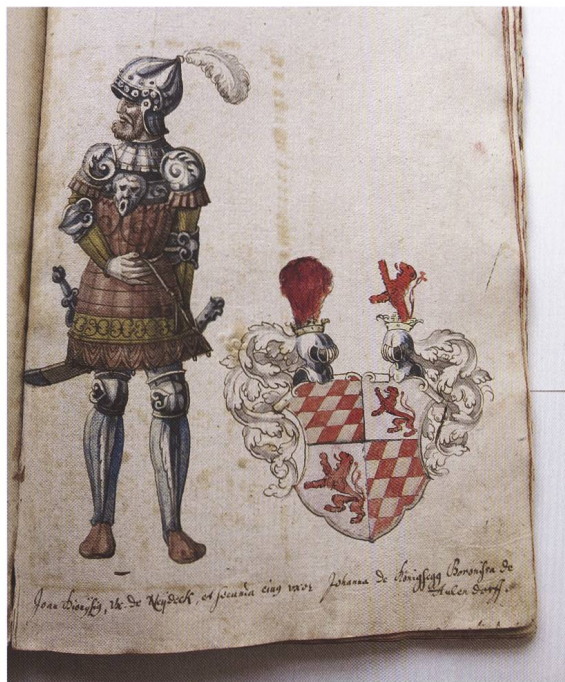 Joan Dionysius, de Neydeck, et secunda eius uxor Johanna de Königsegg Baronissa de
Aulendorff.